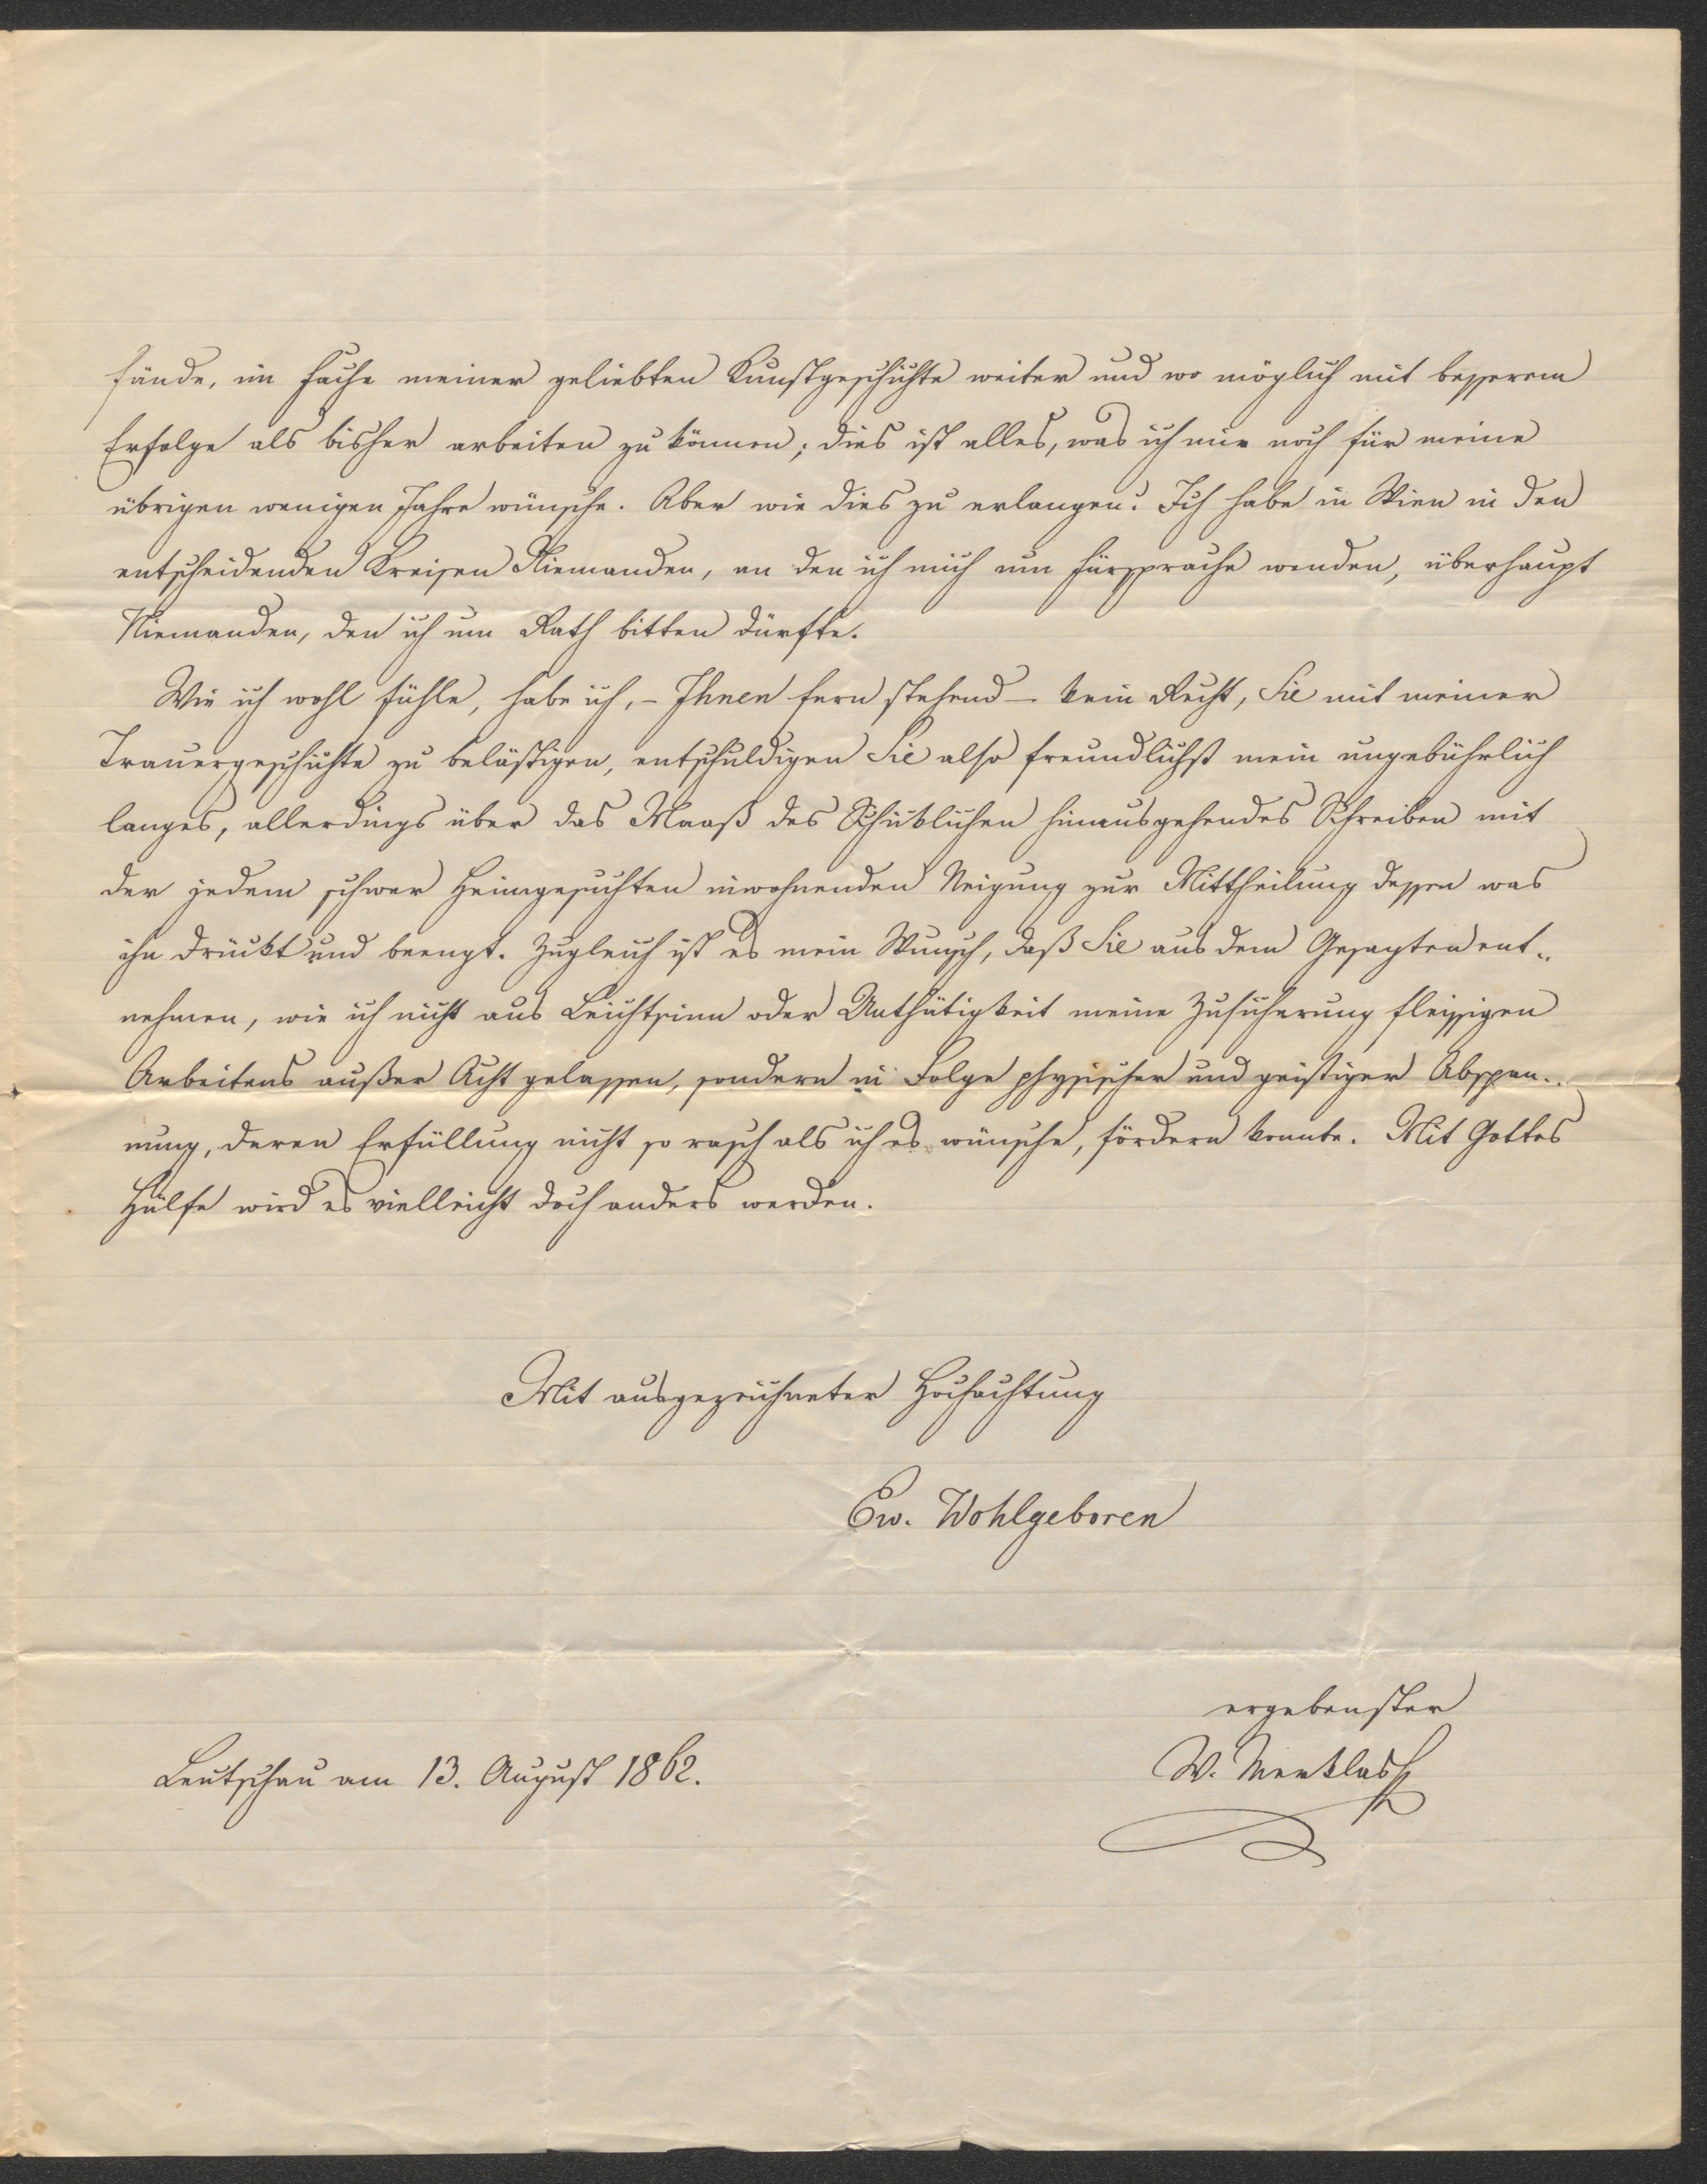 fände, im Fache meiner geliebten Kunstgeschichte weiter und wo möglich mit besserem
Erfolge als bisher arbeiten zu können; dies ist alles, was ich mir noch für meine
übrigen wenigen Jahre wünsche. Aber wie dies zu erlangen? Ich habe in Wien in den
entscheidenden Kreisen Niemanden, an den ich mich um Fürsprache wenden, überhaupt
Niemanden, den ich um Rath bitten dürfte.
Wie ich wohl fühle, habe ich, – Ihnen fern stehend – kein Recht, Sie mit meiner
Trauergeschichte zu belästigen, entschuldigen Sie also freundlichst mein ungebührlich
langes, allerdings über das Maaß des Schicklichen hinausgehendes Schreiben mit
der jedem schwer Heimgesuchten inwohnenden Neigung zur Mittheilung dessen was
ihn drückt und beengt. Zugleich ist es mein Wunsch, daß Sie aus dem Gesagten ent-
nehmen, wie ich nicht aus Leichtsinn oder Unthätigkeit meine Zusicherung fleissigen
Arbeitens außer Acht gelassen, sondern in Folge physischer und geistiger Abspan-
nung, deren Erfüllung nicht so rasch als ich es wünsche, fördern konnte. Mit Gottes
Hülfe wird es vielleicht doch anders werden.
Mit ausgezeichneter Hochachtung
Ew. Wohlgeboren
ergebenster
W. Merklas
Leutschau am 13. August 1862.